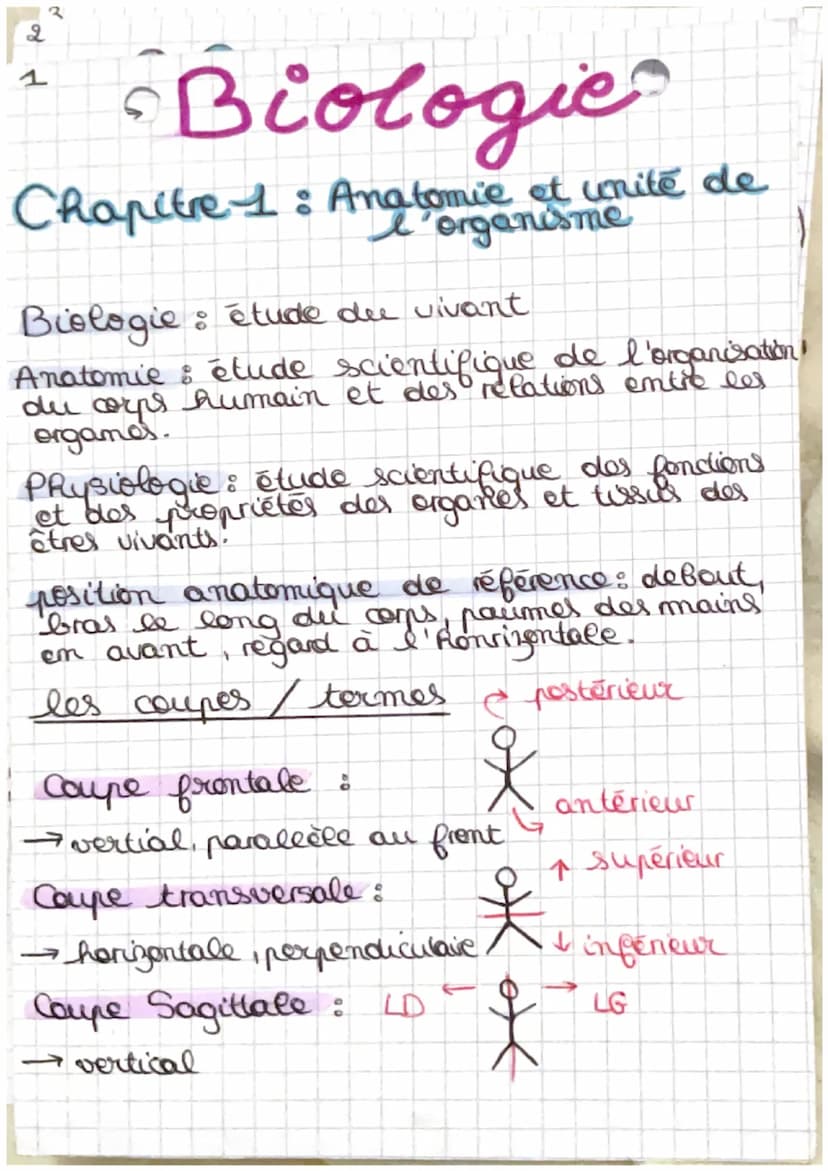 2
2
1
Biologie
Chapitre 1 : Anatomie et unité de
l'organisme
Biologie : étude du vivant
Anatomie : étude scientifique de l'organisation
du corps humain et des relations entre les
organes.
Physiologie : étude scientifique des fonctions
et des propriétés des organes et tissus des
êtres vivants.
position anatomique de référence : debout,
bras le long du corps, paumes des mains
en avant, regard à l'honrizontale.
les coupes / termes
postérieur
Coupe frontale :
antérieur
→ vertial, parallèle au front
supérieur
Coupe transversale :
→ horizontale, perpendiculaire
↓ inférieur
Coupe Sagittale : LD ← → LG
→ vertical